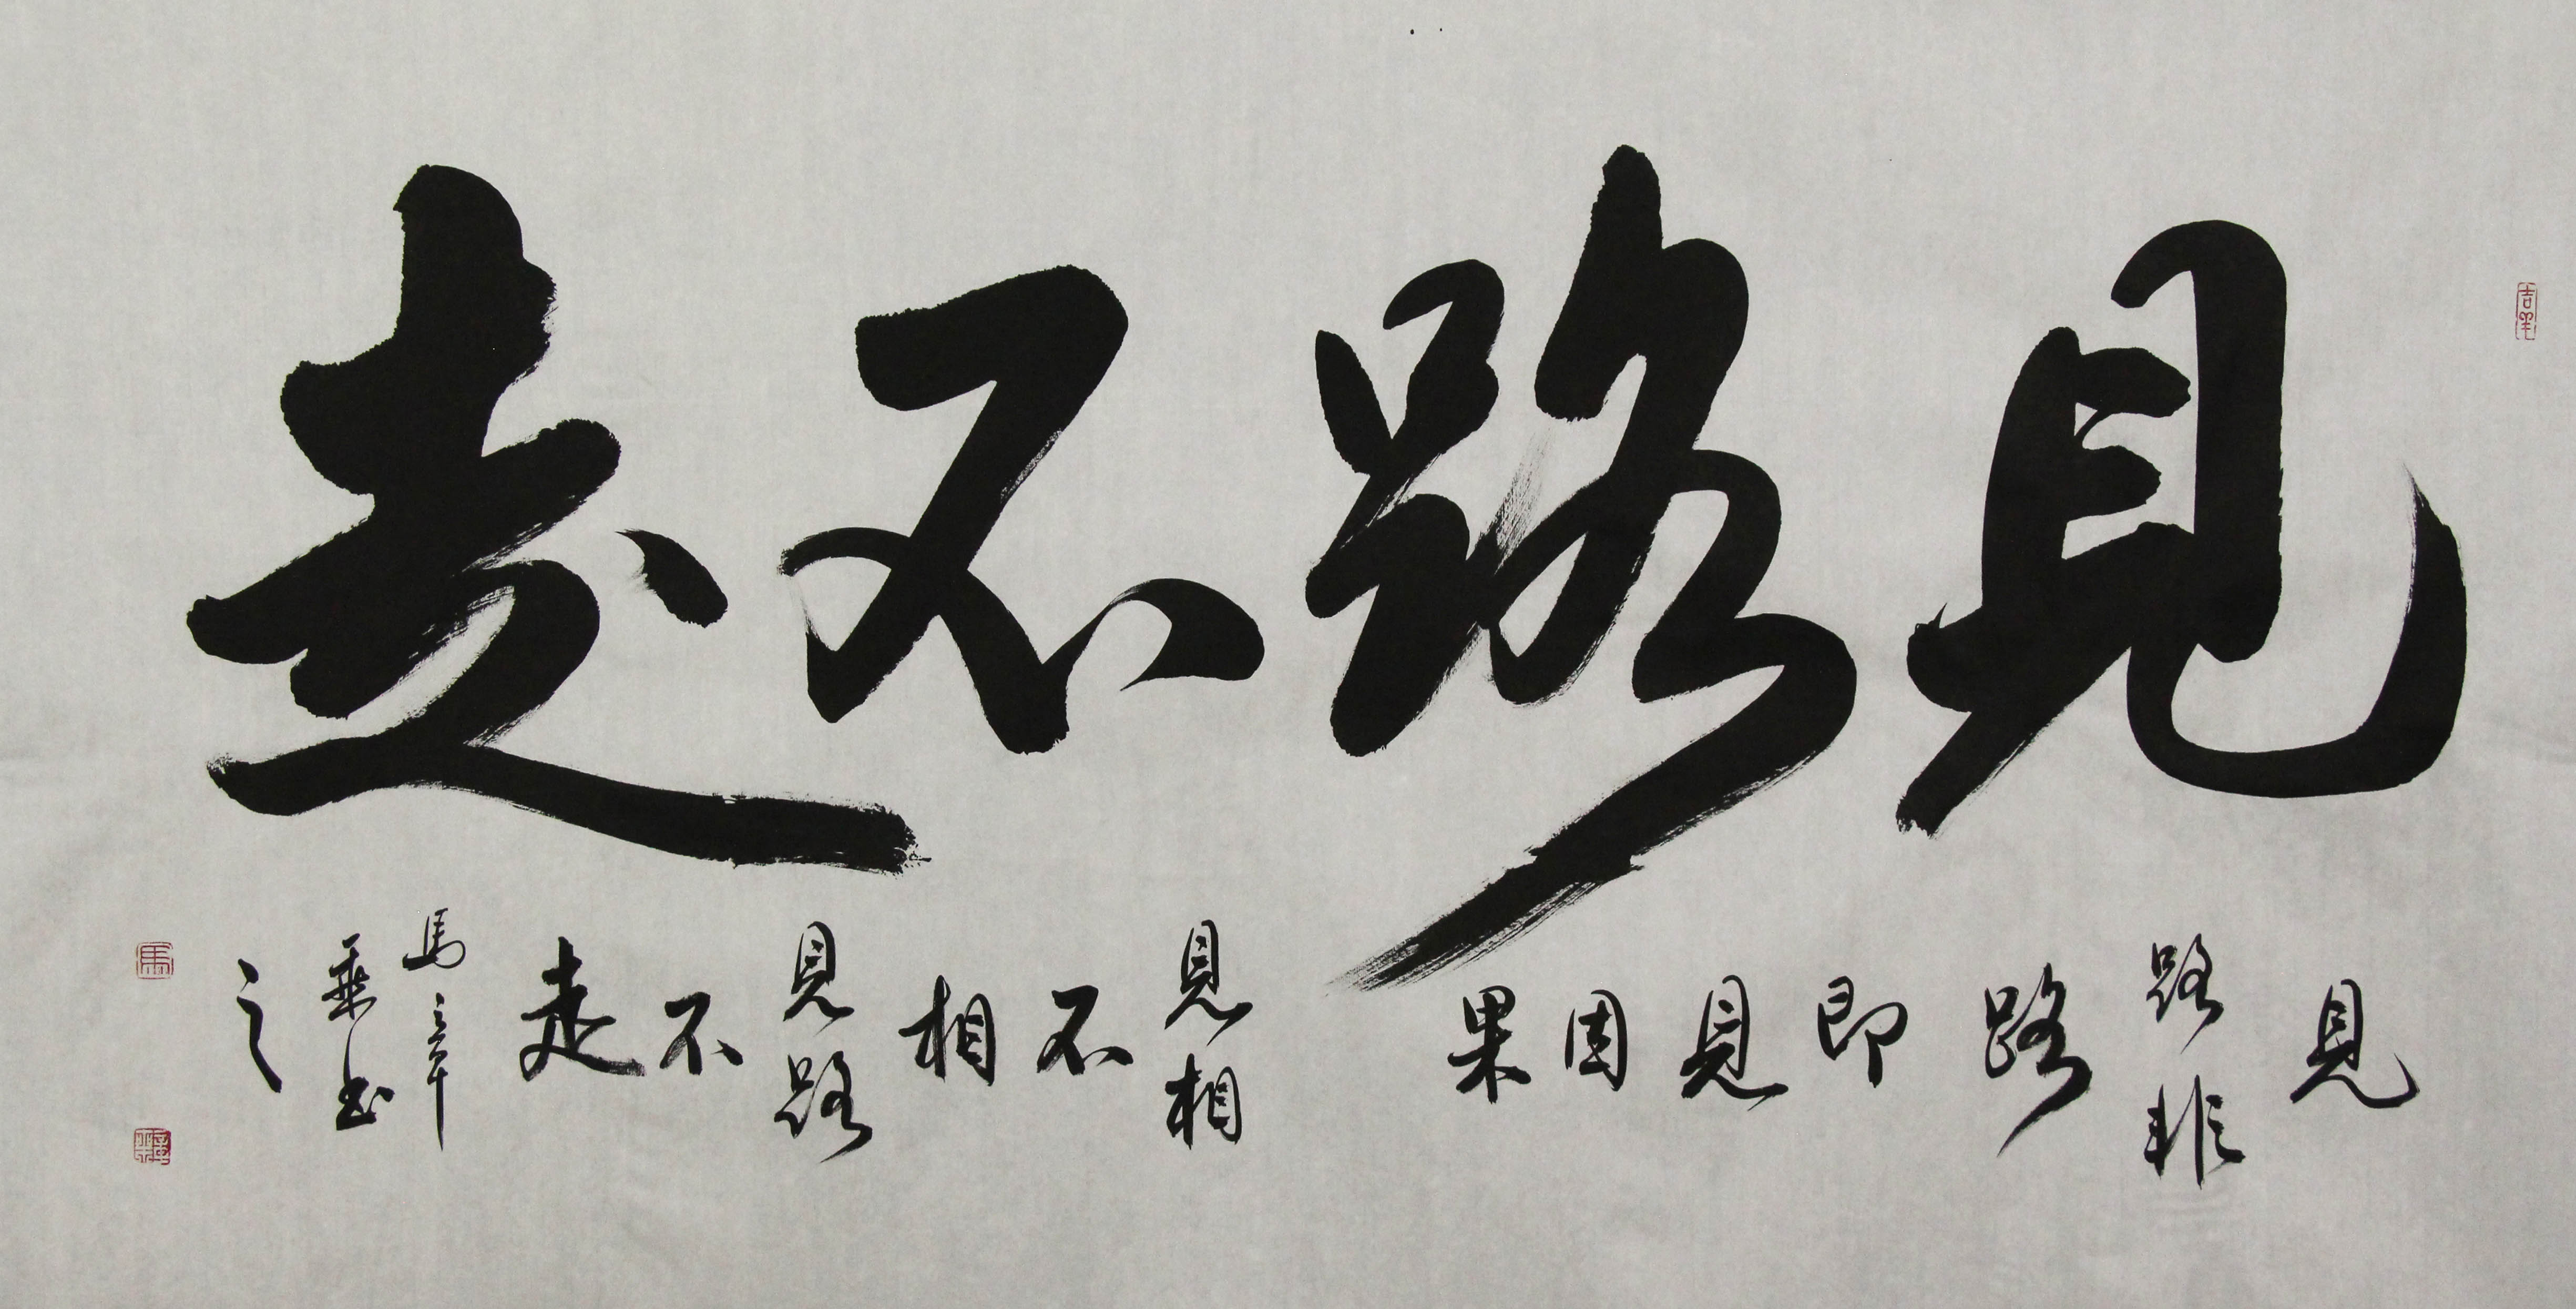 見路不走
見路非路即見因果
見相不相見路不走
馬章乘書之
馬
章乘